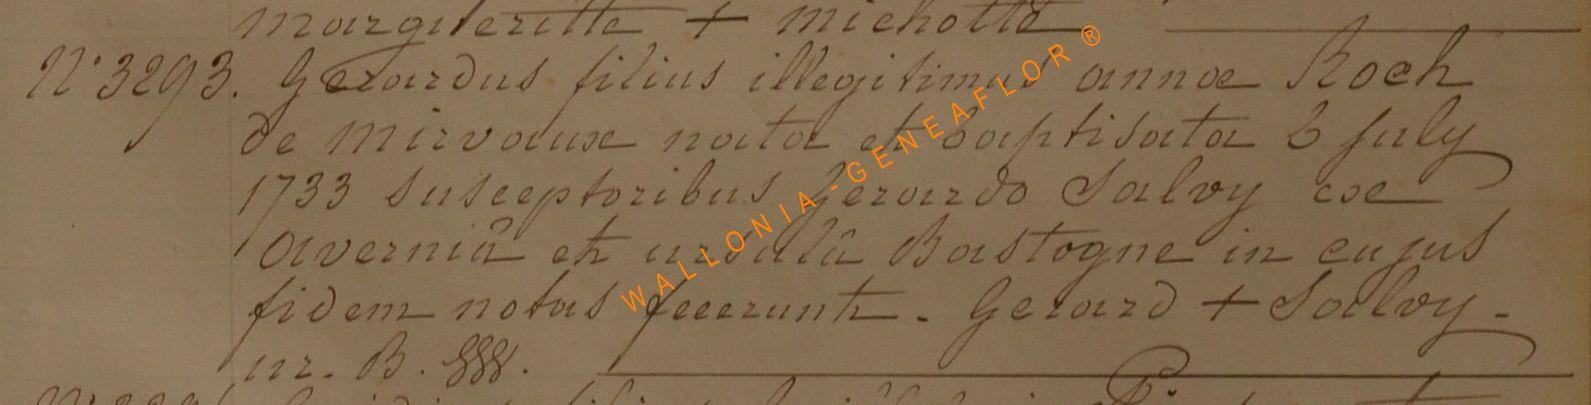 margueritte + michotte
N° 3293. Gerardus filius illegitimus annæ Roch
de Mirvaux nata et baptisata 6 july
1733 susceptoribus Gerardo Salvy exe
avernia et ursulâ Bastogne in cujus
fidem notas fecerunt - Gerard + Salvy -
ur. B. §§§.
WALLONIA-GENEAFLOR ®